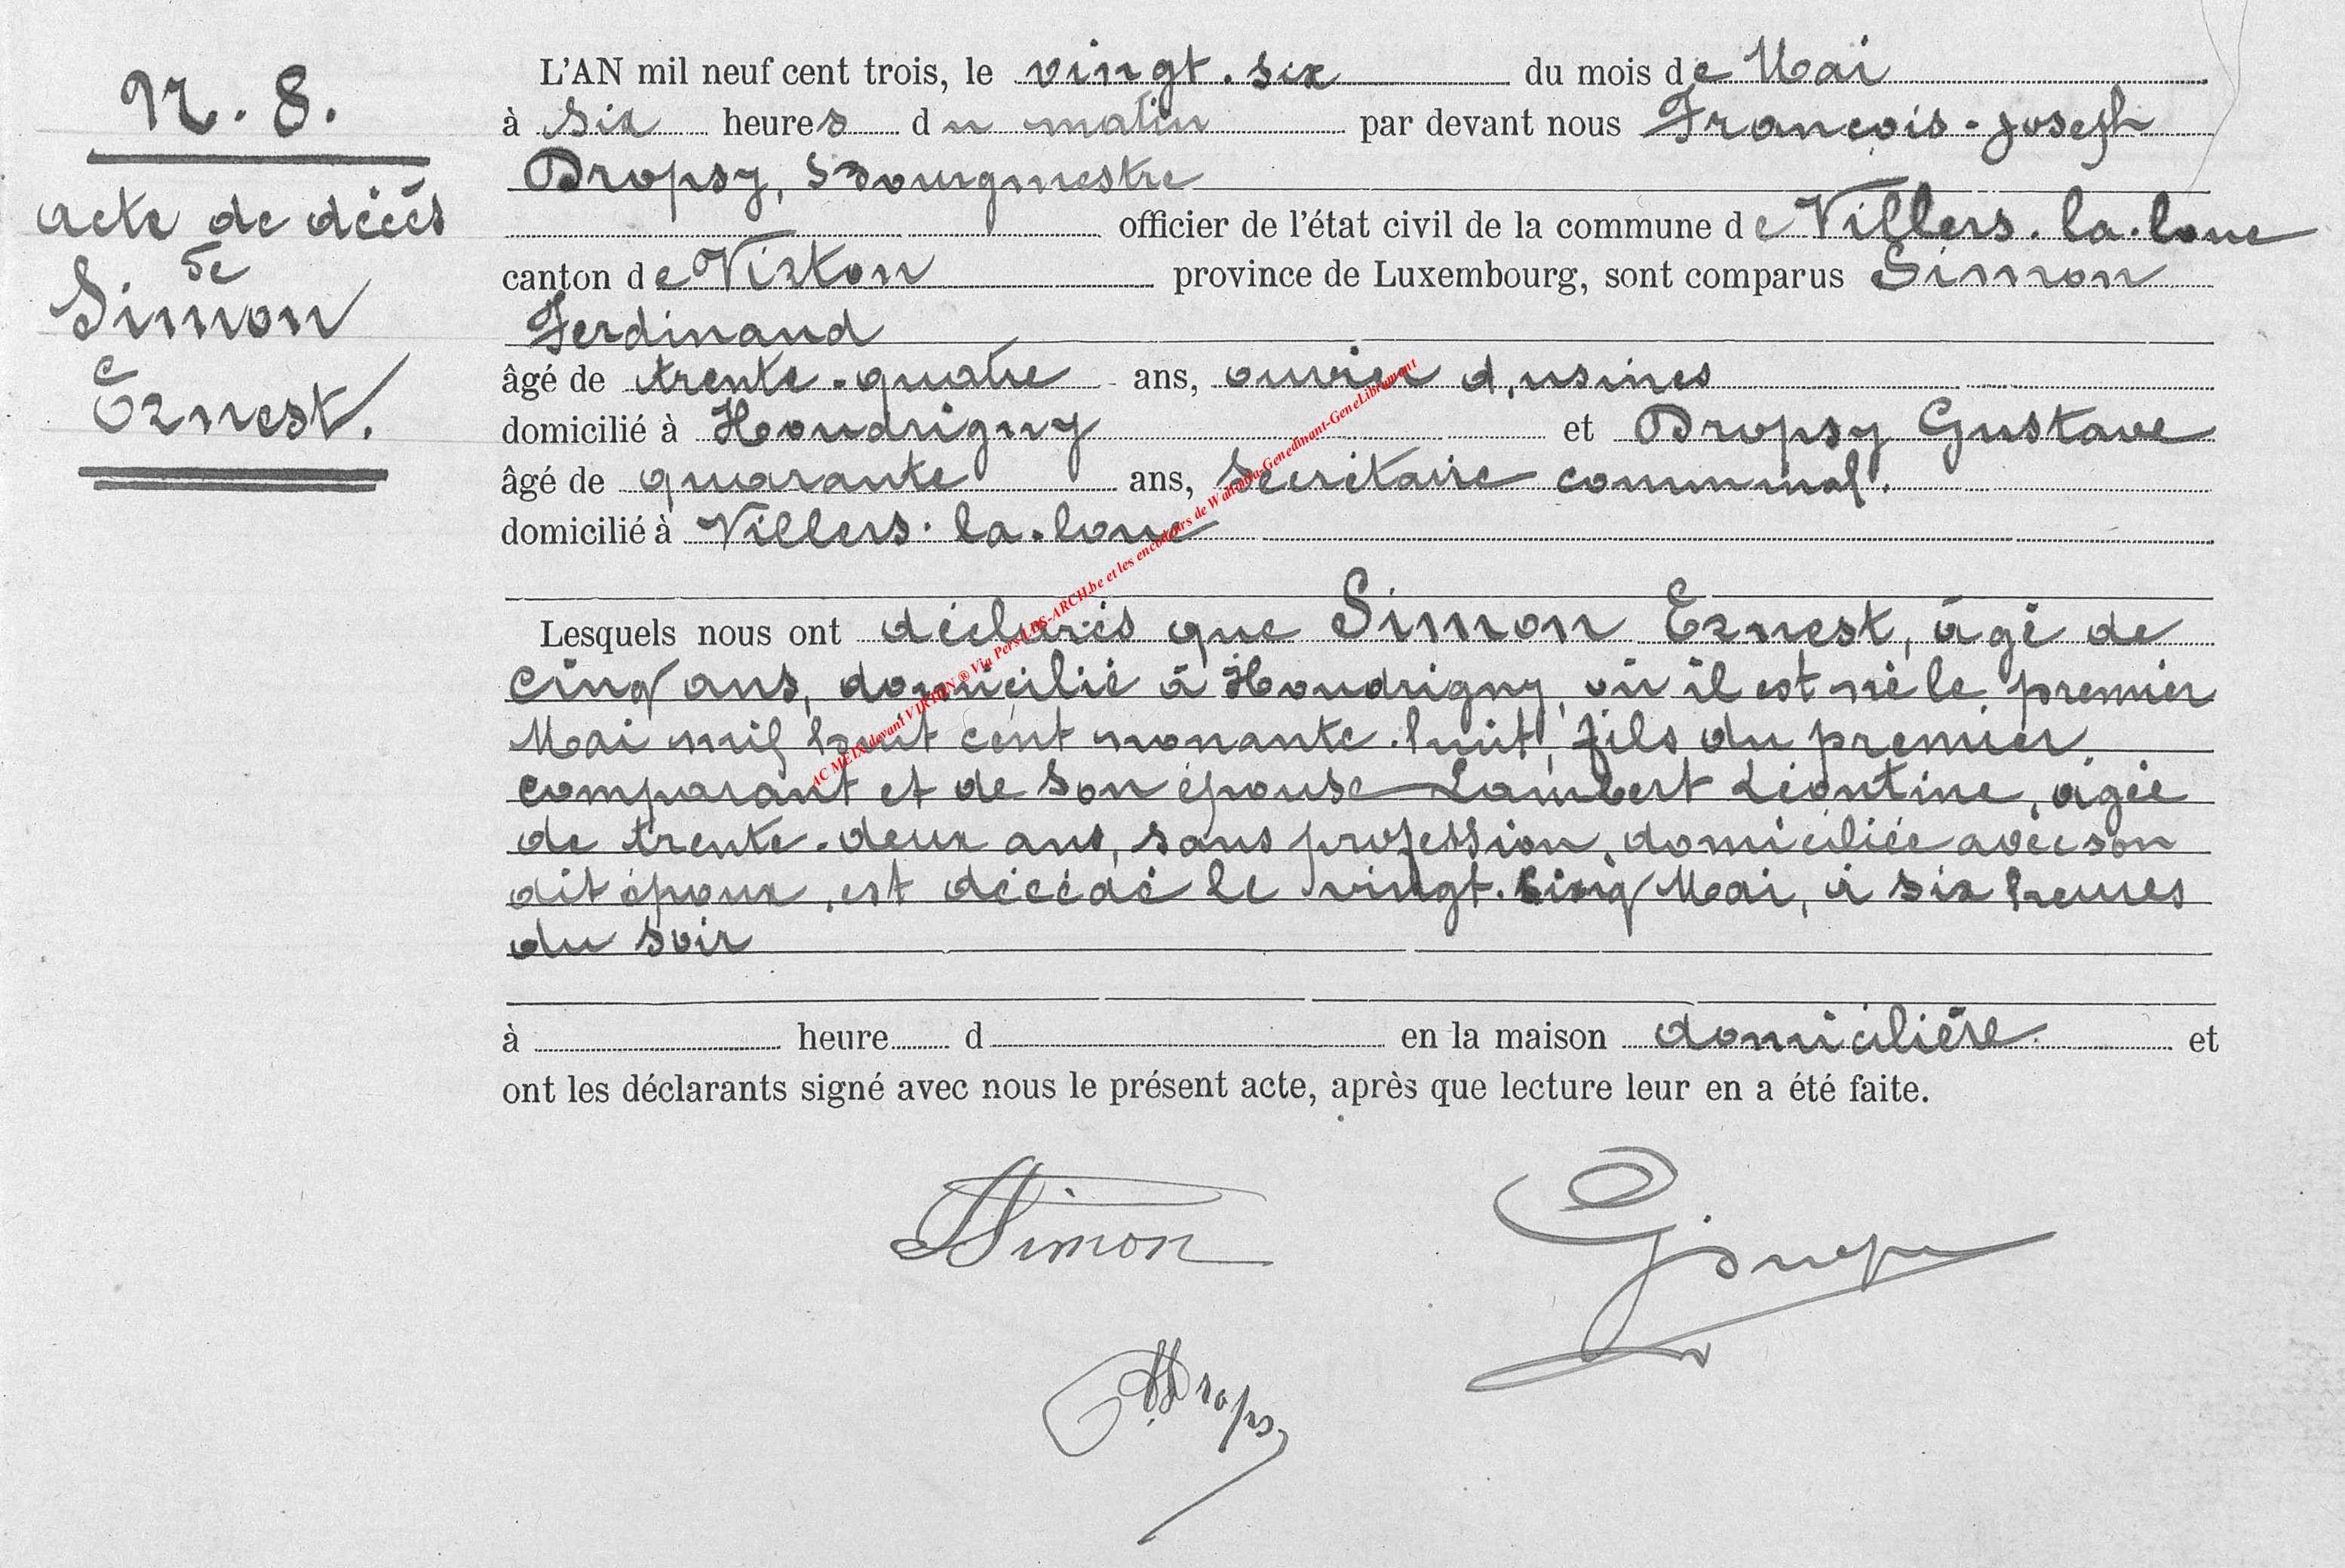 N. 8.
acte de décès
de
Simon
Ernest.
L'AN mil neuf cent trois, le vingt-six du mois de Mai
à six heures du matin par devant nous François-Joseph
Dropsy, Bourgmestre
officier de l'état civil de la commune de Villers-la-loue
canton de Virton province de Luxembourg, sont comparus Simon
Ferdinand
âgé de trente-quatre ans, ouvrier d'usines
domicilié à Houdrigny et Dropsy Gustave
âgé de quarante ans, secrétaire communal.
domicilié à Villers-la-loue
Lesquels nous ont déclarés que Simon Ernest, âgé de
cinq ans, domicilié à Houdrigny, où il est né le premier
Mai mil huit cent nonante-huit, fils du premier
comparant et de son épouse Lambert Léontine, âgée
de trente-deux ans, sans profession, domiciliée avec son
dit époux, est décédé le vingt-cinq Mai, à six heures
du soir
à heure d en la maison domicilière et
ont les déclarants signé avec nous le présent acte, après que lecture leur en a été faite.
Simon
Dropsy
AC MEIX devant VIRTON ® Via Pers LDS-ARCH.be et les encodeurs de Wallonia-Genedinant-GeneLibramont